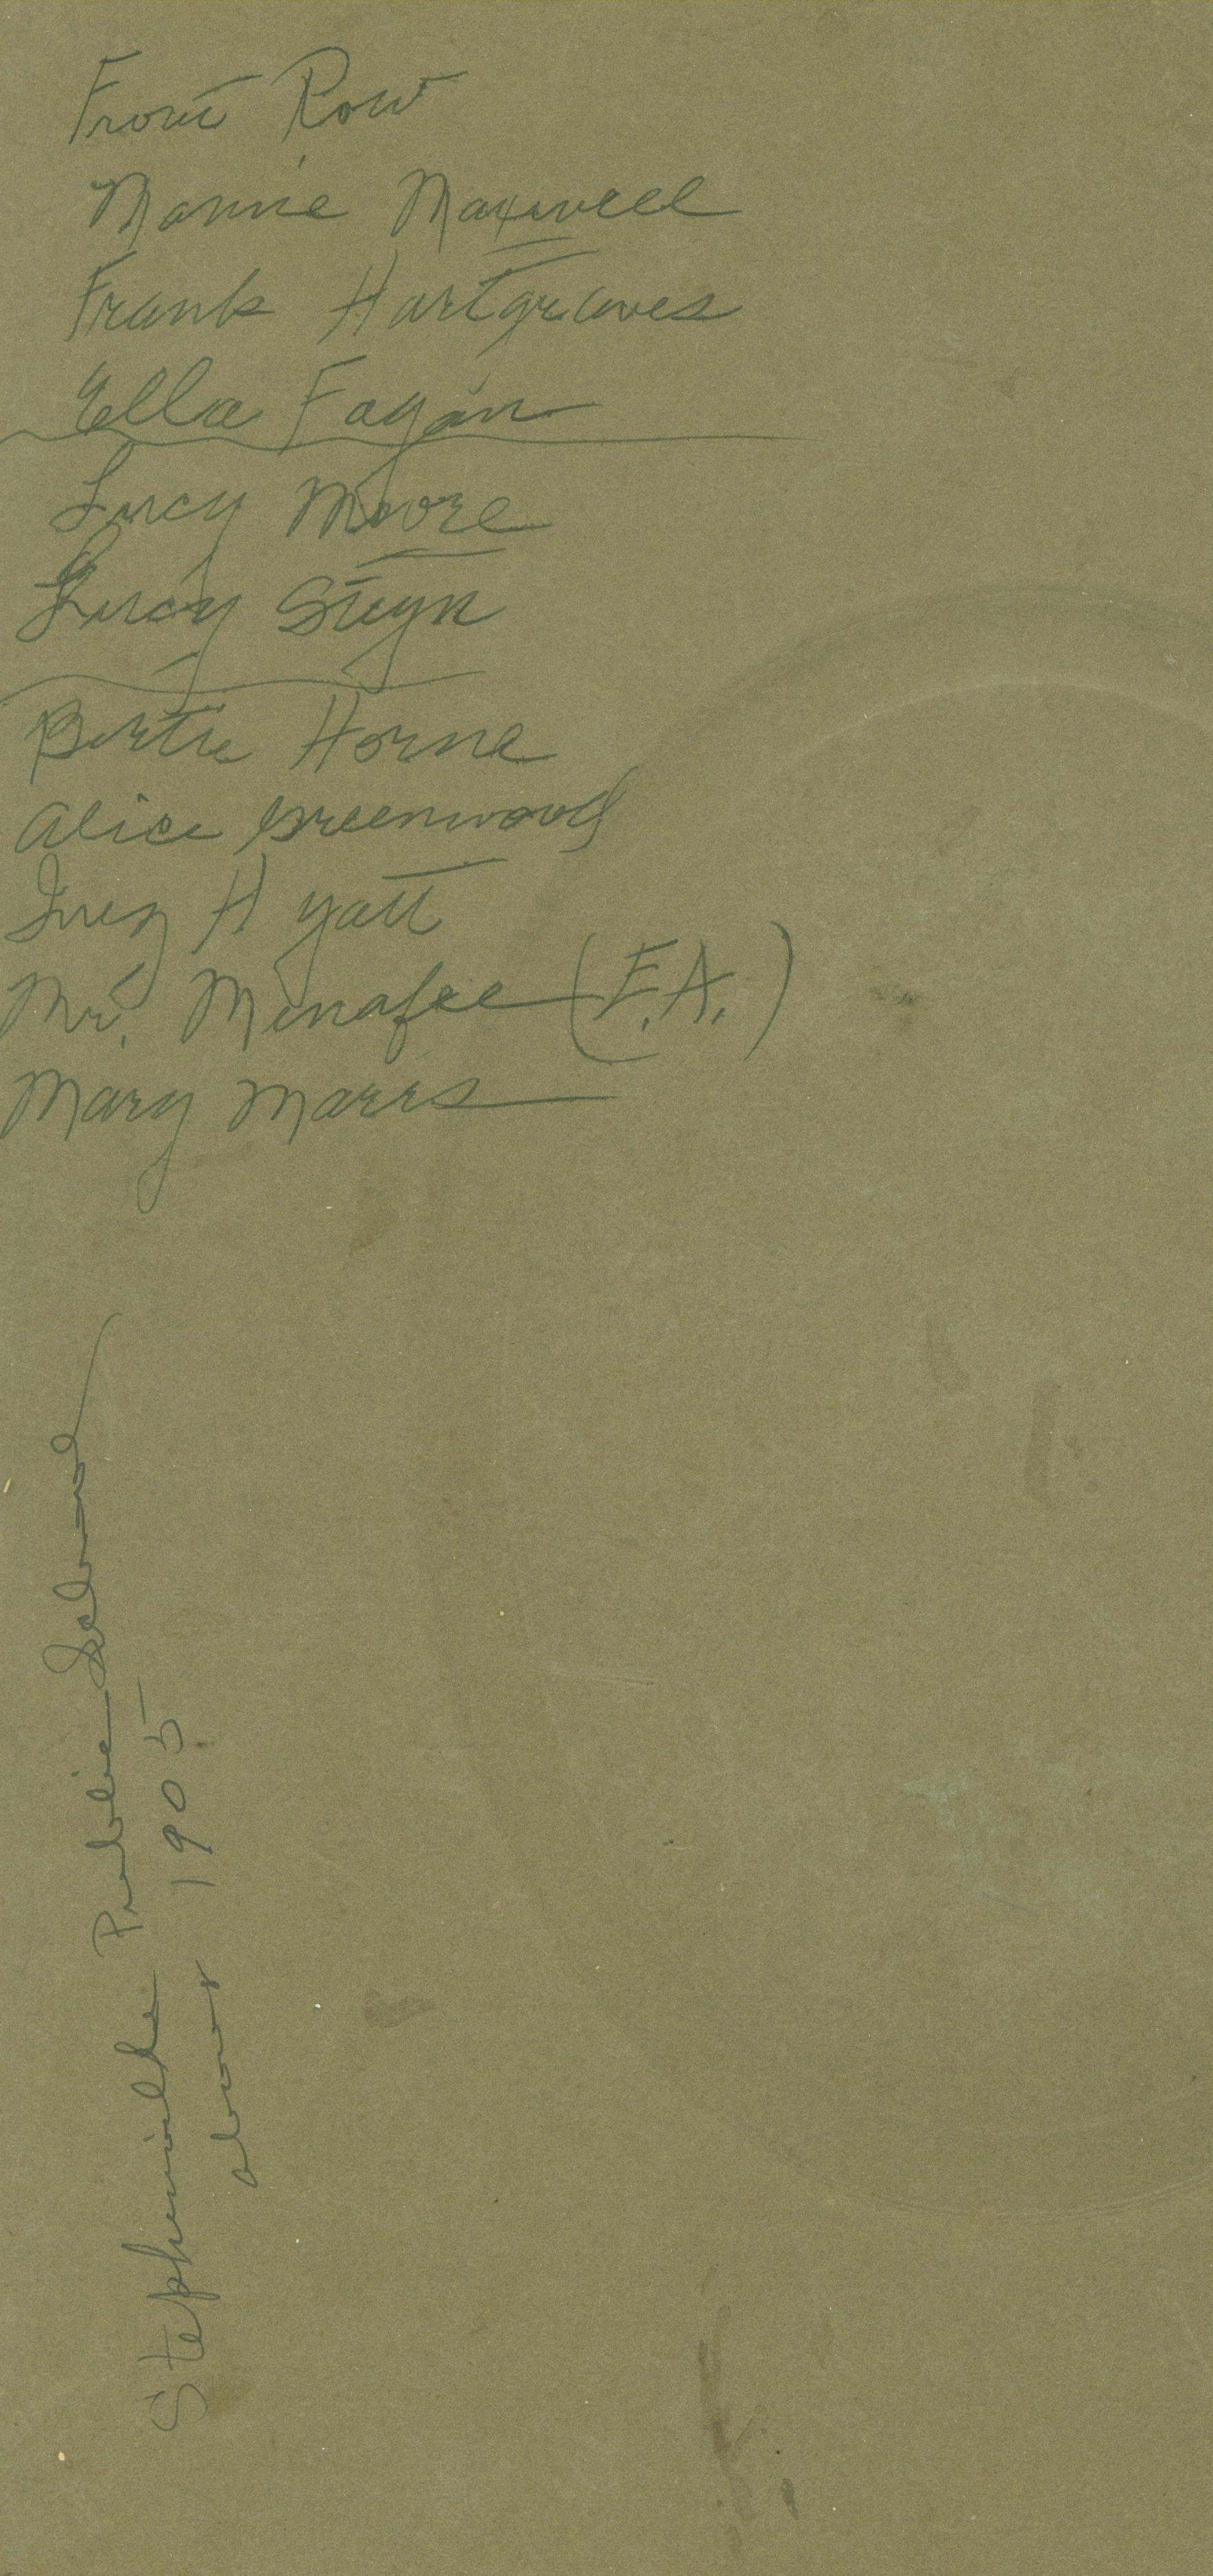 Front Row
Mannie Maxwell
Frank Hartgraves
Ella Fagan
Lucy Moore
Lucy Steyn
Birtie Horne
Alice Greenwood
Inez Hyatt
Mr. Menafee (F.A.)
Mary Marrs
Stephenville Public School
about 1905